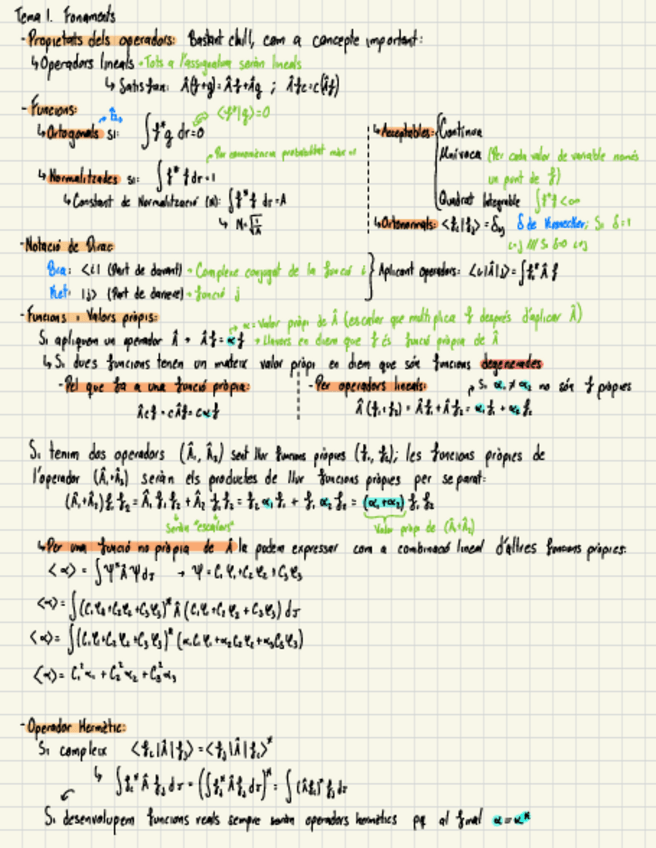 Tema 1. Fonaments
- Propietats dels operadors: Bastant chill, com a concepte important:
↳ Operadors lineals → Tots a l'assignatura seràn lineals
↳ Satisfan: Â(f+g)=Âf+Âg ; Âfc=c(Âf)
- Funcions:
↳ Ortogonals si: ∫f*g dτ=0 <f*|g>=0
↳ Normalitzades si: ∫f*f dτ=1 Per conveniència probabilitat màx=1
↳ Constant de Normalització (N): ∫f*f dτ=A
↳ N=√(1/A)
↳ Acceptables: Contínua
Unívoca (Per cada valor de variable només
un punt de f)
Quadrat Integrable ∫f*f<∞
↳ Ortonormals: <fi|fj>=δij δ de Kronecker; Si δ=1
i=j /// Si δ=0 i≠j
- Notació de Dirac
Bra: <i| (Part de davant) → Complexe conjugat de la funció i
Ket: |j> (Part de darrere) → funció j
Aplicant operadors: <i|Â|j>=∫fi*Âf
- Funcions i Valors pròpis:
α=Valor pròpi de Â (escalar que multiplica f després d'aplicar Â)
Si apliquem un operador Â → Âf=αf → Llavors en diem que f és funció pròpia de Â
↳ Si dues funcions tenen un mateix valor pròpi en diem que són funcions degenerades
- Pel que fa a una funció pròpia:
Âcf=cÂf=cαf
- Per operadors lineals: Si α1≠α2 no són f pròpies
Â(f1+f2)=Âf1+Âf2=α1f1+α2f2
Si tenim dos operadors (Â1, Â2) sent llur funcions pròpies (f1, f2); les funcions pròpies de
l'operador (Â1+Â2) seràn els productes de llur funcions pròpies per separat:
(Â1+Â2)f1f2=Â1f1f2+Â2f1f2=f2α1f1+f1α2f2=(α1+α2)f1f2
Seràn "escalars" Valor pròp de (Â1+Â2)
↳ Per una funció no pròpia de Â la podem expressar com a combinació lineal d'altres funcions pròpies:
<α>=∫Ψ*ÂΨdτ → Ψ=C1φ1+C2φ2+C3φ3
<α>=∫(C1φ1+C2φ2+C3φ3)*Â(C1φ1+C2φ2+C3φ3)dτ
<α>=∫(C1φ1+C2φ2+C3φ3)*(α1C1φ1+α2C2φ2+α3C3φ3)
<α>=C1²α1+C2²α2+C3²α3
- Operador Hermètic:
Si compleix <fi|Â|fj>=<fj|Â|fi>*
↳ ∫fi*Âfj dτ=(∫fj*Âfi dτ)*=∫(Âfi)*fj dτ
Si desenvolupem funcions reals sempre seràn operadors hermètics pq al final α=α*